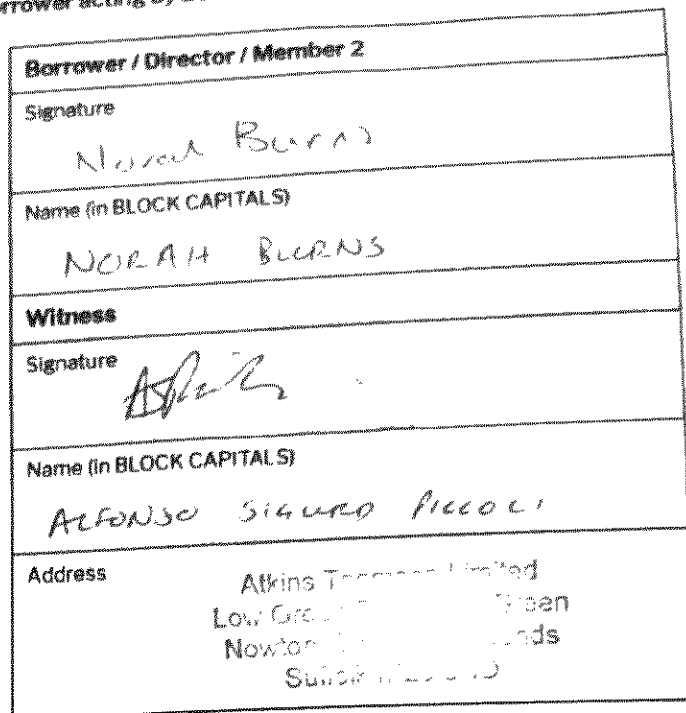 acting by
Borrower / Director / Member 2
Signature
Norah Burns
Name (in BLOCK CAPITALS)
NORAH BURNS
Witness
Signature
Name (in BLOCK CAPITALS)
ALFONSO SIGURD PICCOLI
Address
Atkins Limited
Low Green